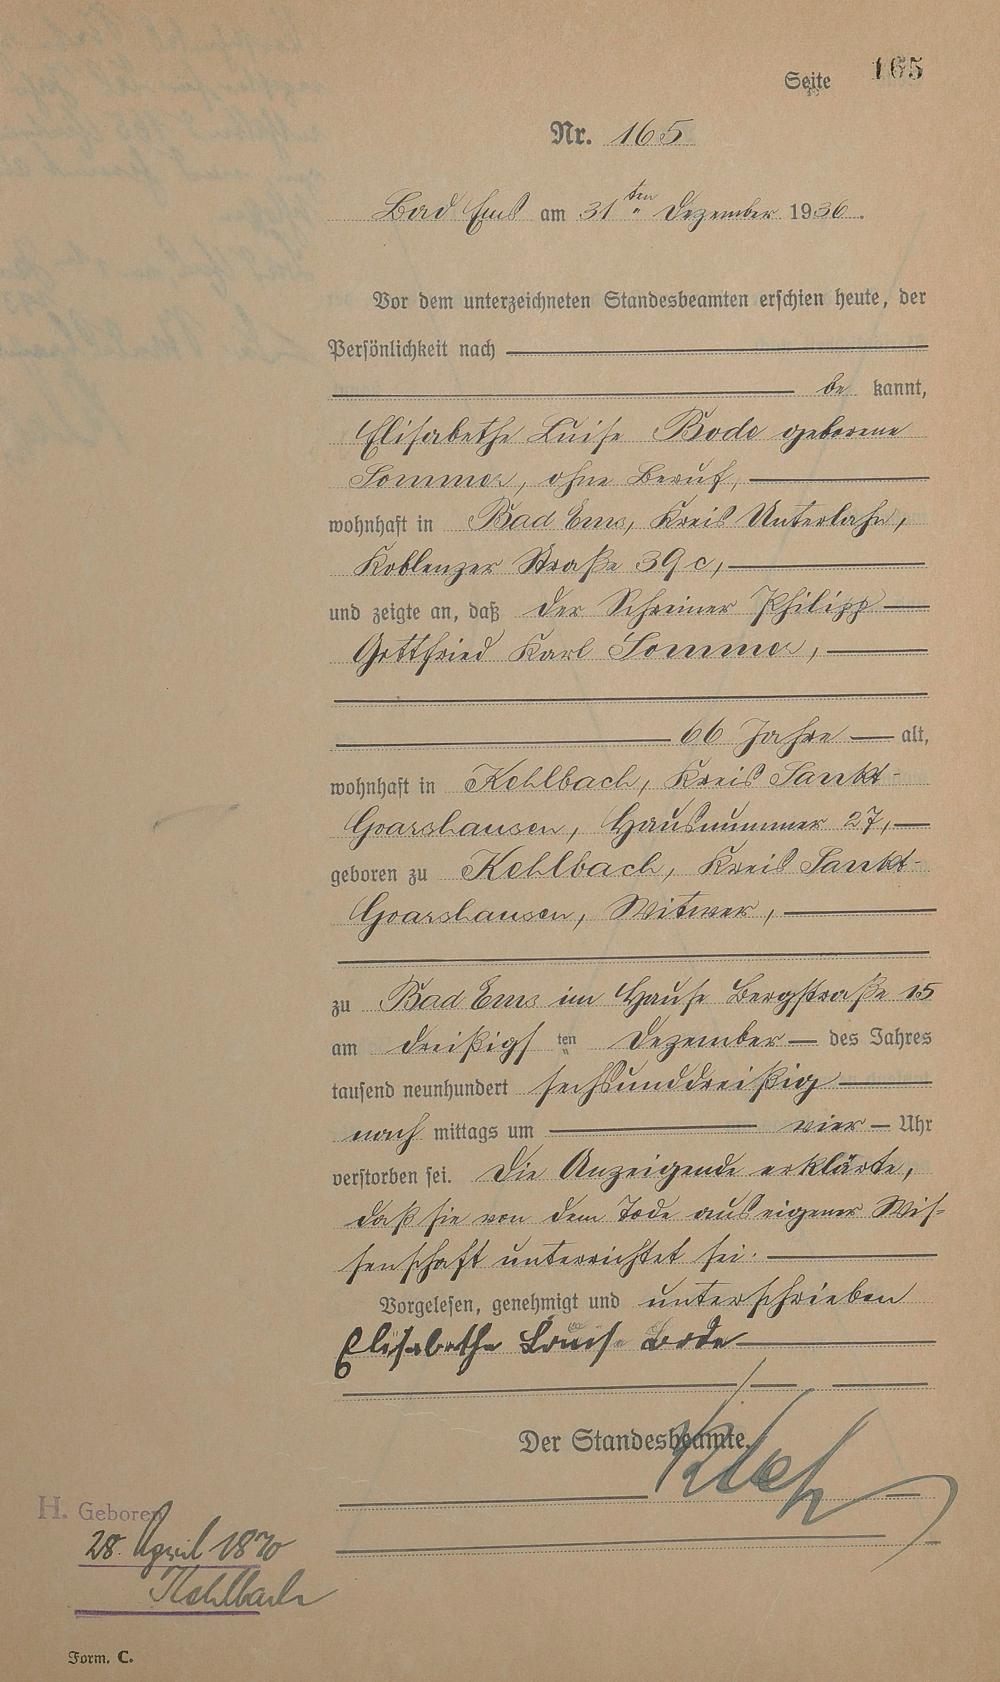 Seite 165
Nr. 165
Bad Ems am 31ten Dezember 1936.
Vor dem unterzeichneten Standesbeamten erschien heute, der
Persönlichkeit nach
be kannt,
Elisabethe Luise Bode geborene
Sommer, ohne Beruf,
wohnhaft in Bad Ems, Kreis Unterlahn,
Koblenzer Straße 39 c,
und zeigte an, daß der Schreiner Philipp
Gottfried Karl Sommer,
66 Jahre alt,
wohnhaft in Kehlbach, Kreis Sankt-
Goarshausen, Hausnummer 27,
geboren zu Kehlbach, Kreis Sankt-
Goarshausen, Witwer,
zu Bad Ems im Hause Bergstraße 15
am dreißigsten Dezember des Jahres
tausend neunhundert sechsunddreißig
nach mittags um vier Uhr
verstorben sei. Die Anzeigende erklärte,
daß sie von dem Tode aus eigener Wis-
senschaft unterrichtet sei.
Vorgelesen, genehmigt und unterschrieben
Elisabethe Louise Bode
Der Standesbeamte.
H. Geboren
28. April 1870
Kehlbach
Form. C.